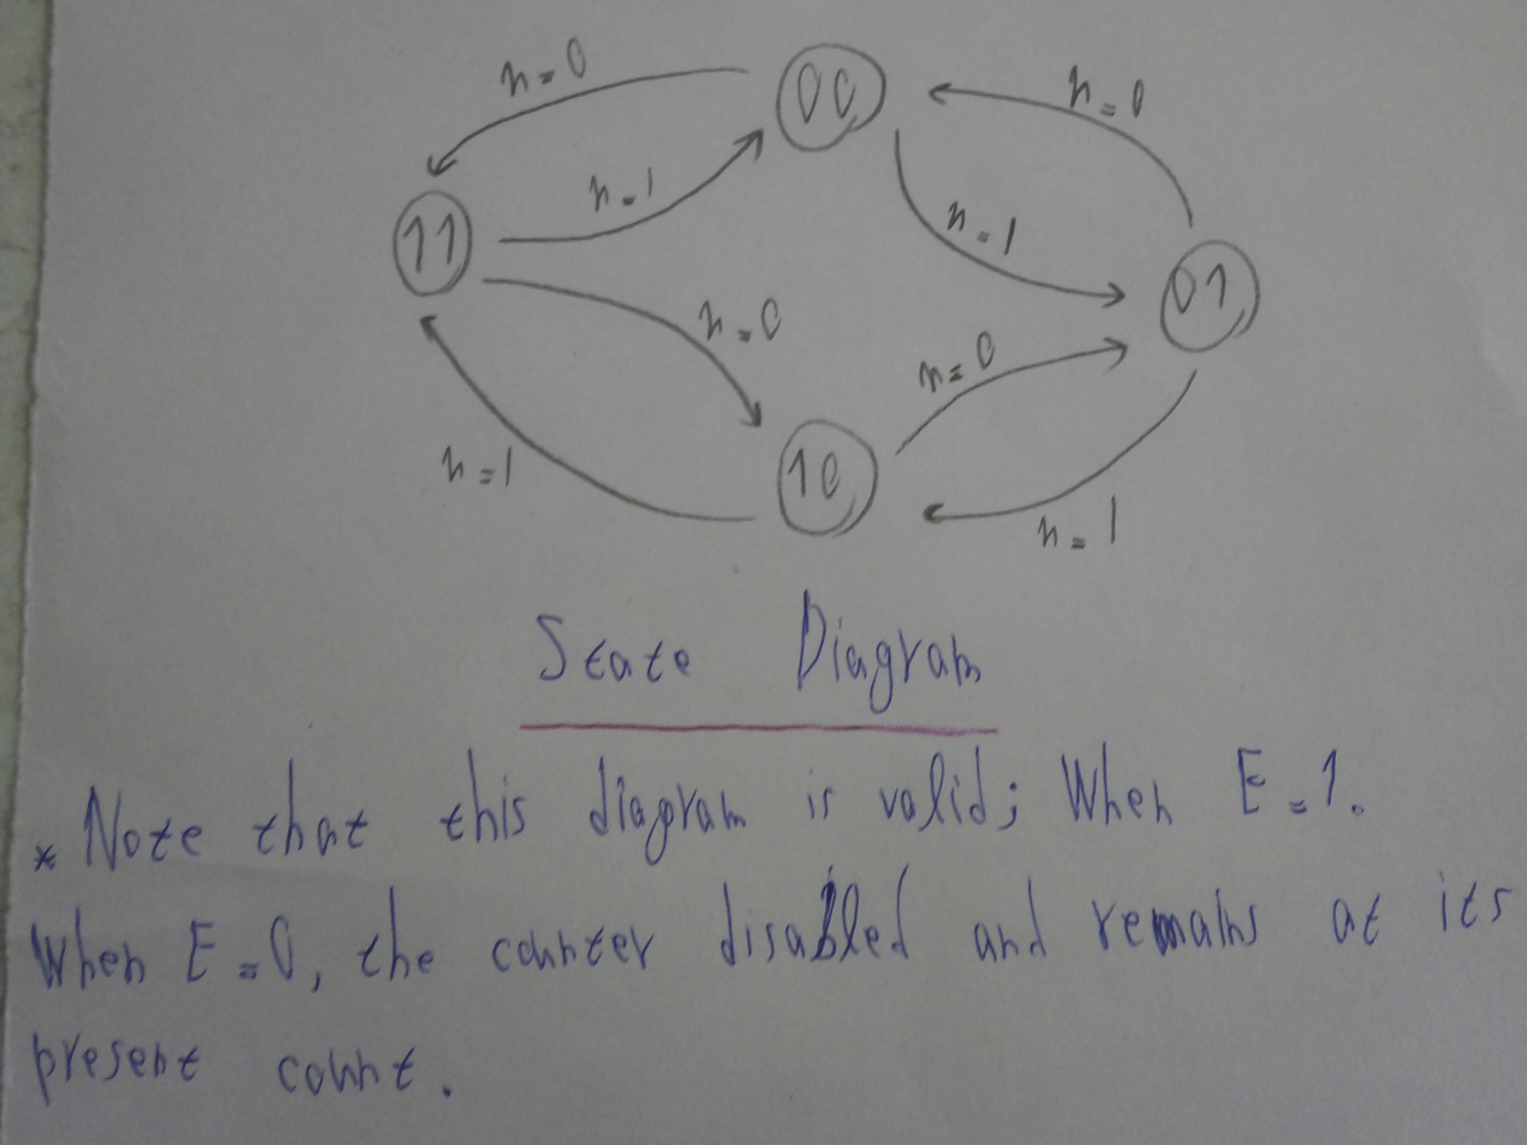 n=0
00
n=0
n=1
11
n=1
01
n=0
n=0
n=1
10
n=1
State Diagram
* Note that this diagram is valid; When E=1.
When E=0, the counter disabled and remains at its
present count.